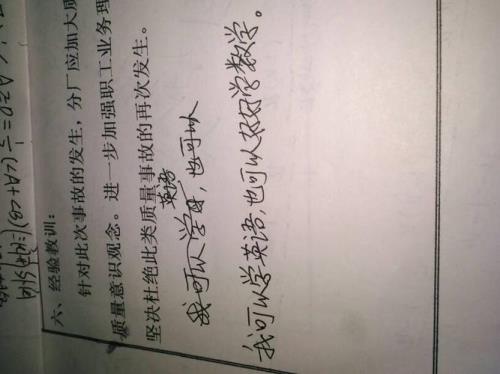 六、经验教训:
针对此次事故的发生，分厂应加大质
质量意识观念。进一步加强职工业务理
坚决杜绝此类质量事故的再次发生。
英语
我可以学，也可以
我可以学英语,也可以好好学数学。